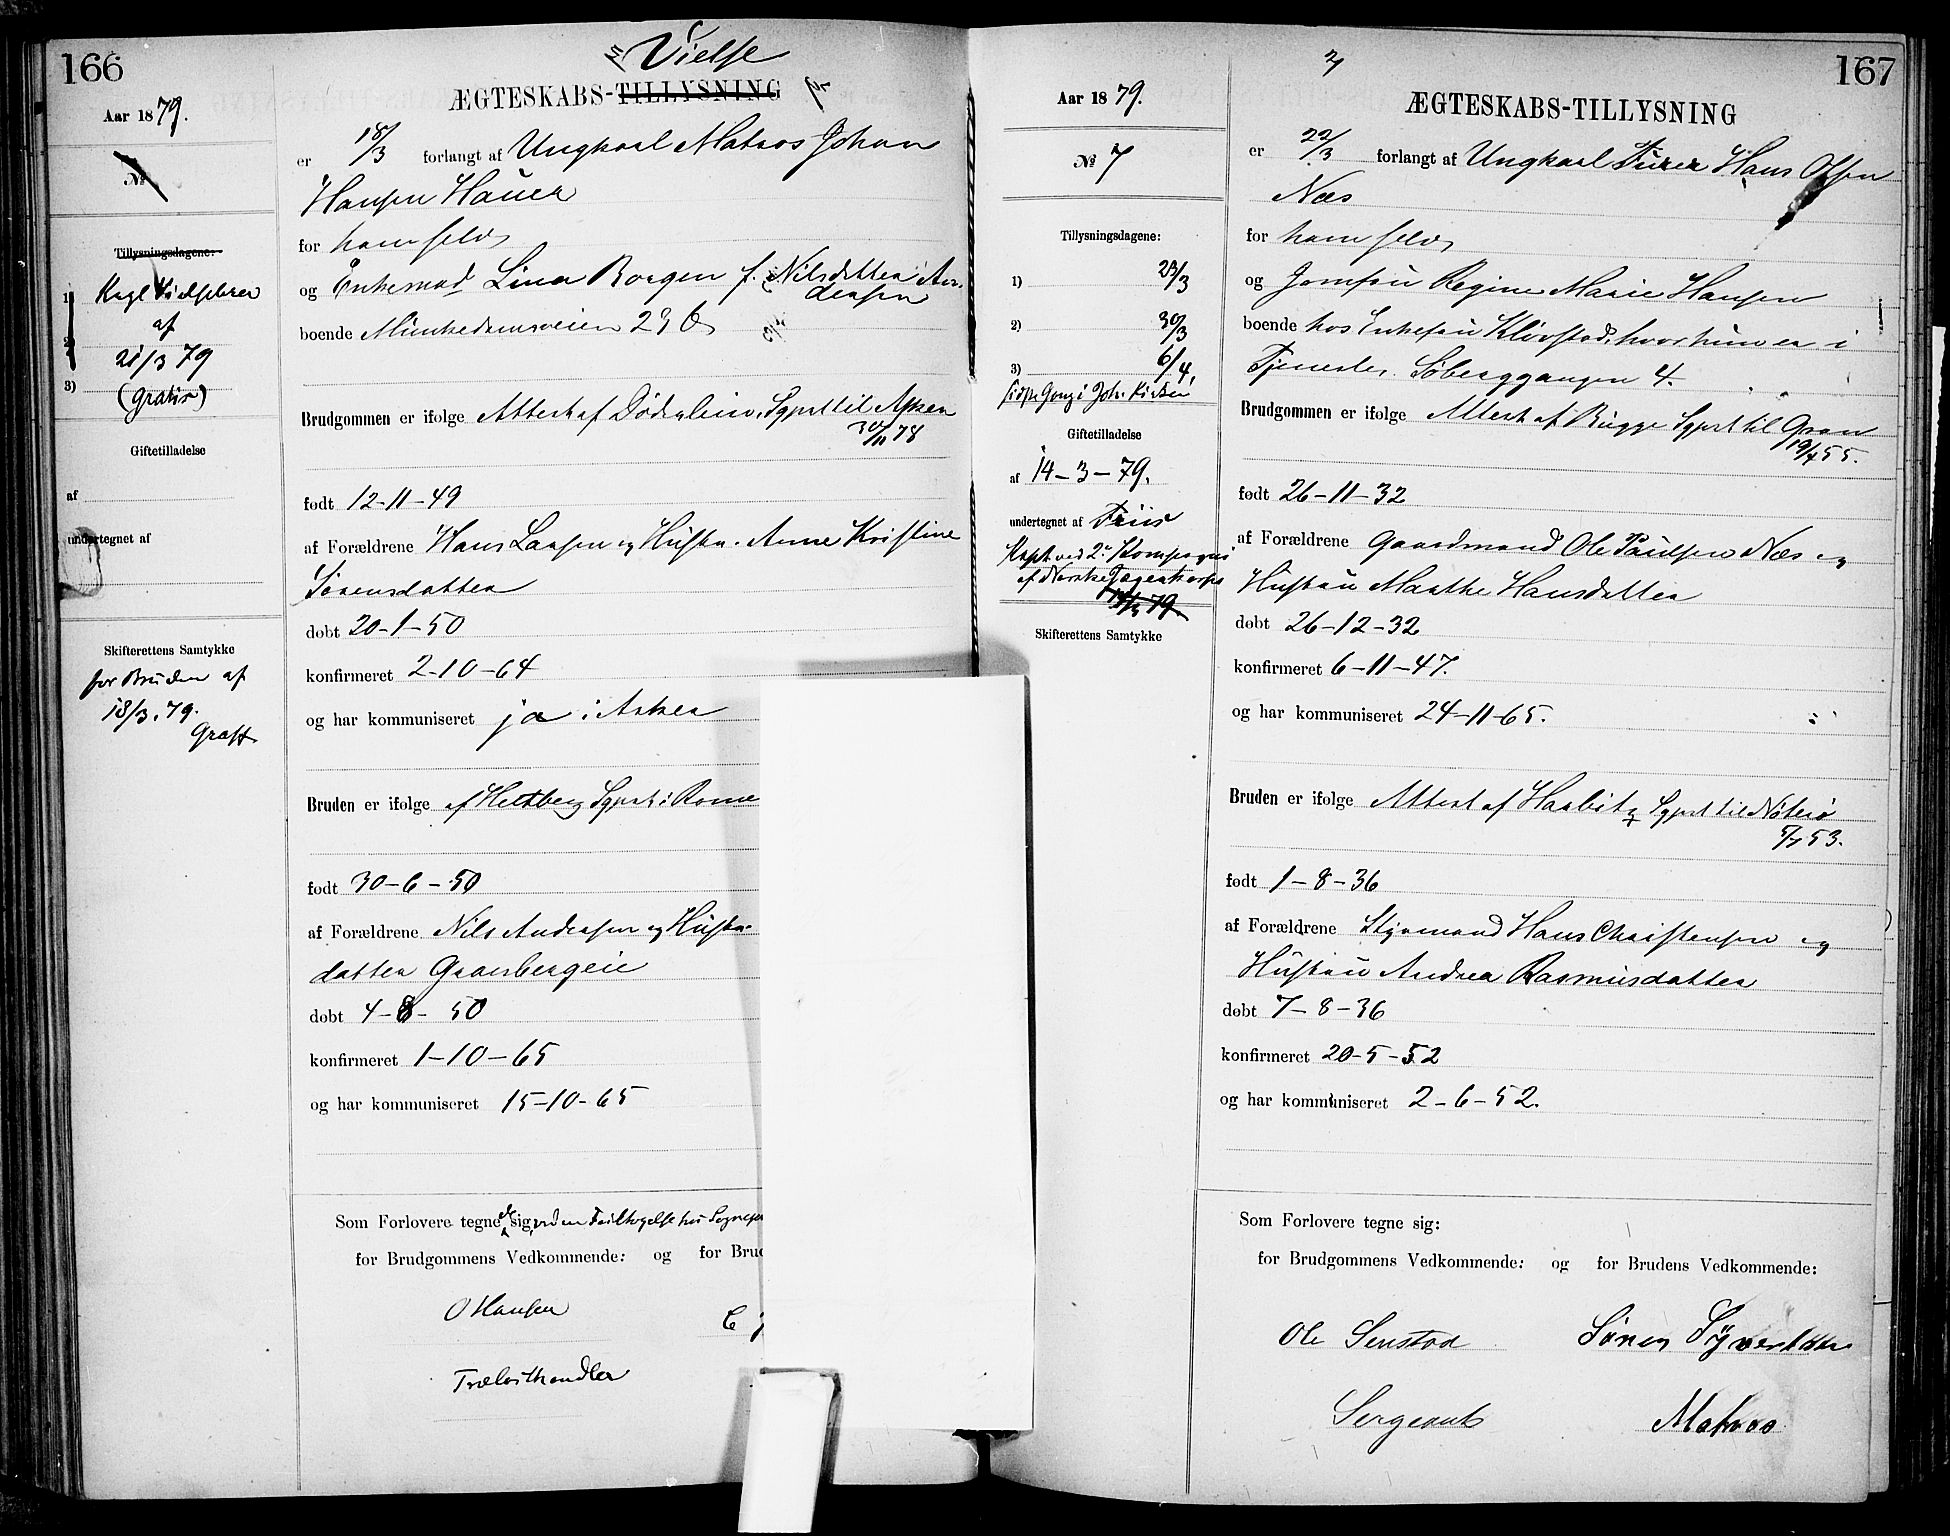 166
Vielse
ÆGTESKABS-TILLYSNING
Aar 1879.
№
er 18/3 forlangt af Ungkarl Matros Johan
Hansen Hauer
for ham selv
og Enkemad. Lina Borgen f. Nilsdatter
boende Munkedamsveien 29
Tillysningsdagene:
1)
Kngl Vielsebrev
af
2)
21/3 79
3) (gratis)
Brudgommen er ifølge Attest af Döderlein, Sgpst til Asker
30/11 78
Giftetilladelse
af
født 12-11-49
undertegnet af
af Forældrene Hans Larsen og Hustr. Anne Kristine
Sørensdatter
døbt 20-1-50
konfirmeret 2-10-64
og har kommuniseret ja i Asker
Skifterettens Samtykke
for Bruden af
18/3. 79.
Bruden er ifølge af Heltberg Sgpst i Rome
født 30-6-50
af Forældrene Nils Andersen og Hustr.
datter
døbt 4-8-50
konfirmeret 1-10-65
og har kommuniseret 15-10-65
Som Forlovere tegne sig
for Brudgommens Vedkommende: og for Brud
O Hansen
C
Trælasthandler
167
Aar 1879.
ÆGTESKABS-TILLYSNING
№ 7
er 22/3 forlangt af Ungkarl Furer Hans Olsen
Næs
for ham selv
og Jomfru Regine Marie Hansen
boende hos Enkefru Kløvstad, hvor hun er i
Tjeneste. Søberggangen 4.
Tillysningsdagene:
1) 23/3
2) 30/3
3) 6/4,
sidste Gang i Joh. Kirken
Brudgommen er ifølge Attest af Bugge Sgpst til Gran
19/4 55.
Giftetilladelse
af 14-3-79.
født 26-11-32
undertegnet af Friis
Kapt ved 2. Kompagni
af Norske Jægerkorps
af Forældrene Gaardmand Ole Paulsen Næs og
Hustru Marthe Hansdatter
døbt 26-12-32
Skifterettens Samtykke
konfirmeret 6-11-47.
og har kommuniseret 24-11-65.
Bruden er ifølge Attest af Haslitz Sgpst til Nøterø
5/7 53.
født 1-8-36
af Forældrene Styrmand Hans Christensen og
Hustru Andrea Rasmusdatter
døbt 7-8-36
konfirmeret 20-5-52
og har kommuniseret 2-6-52.
Som Forlovere tegne sig:
for Brudgommens Vedkommende: og for Brudens Vedkommende:
Ole Senstad Søren Syvertsen
Sergeant Matros